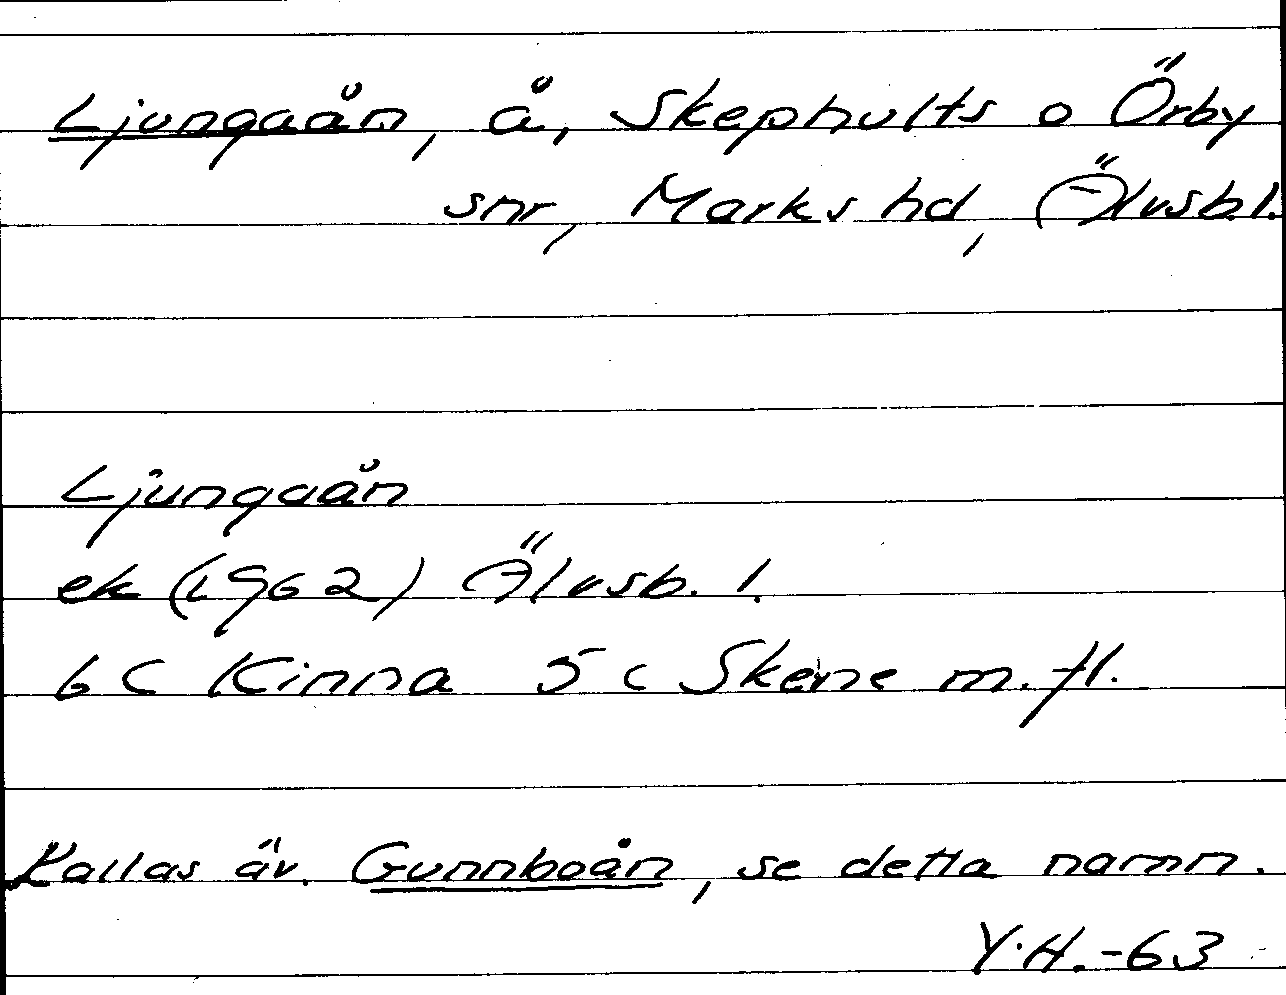 Ljungaån, å, Skephults o Örby
snr, Marks hd, Älvsb.l.
Ljungaån
ek (1962) Älvsb. l.
6 C Kinna 5 c Skene m.fl.
Kallas äv. Gunnboån, se detta namn.
Y.H.-63